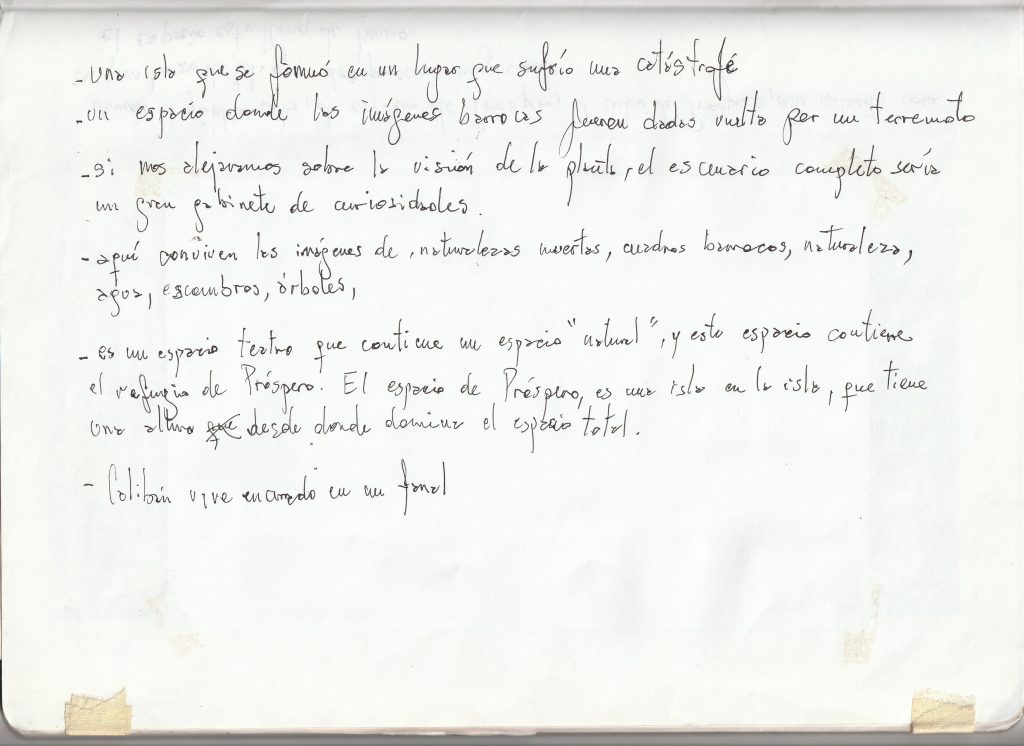 - una isla que se formó en un lugar que sufrió una catástrofé
- un espacio donde las imágenes barrocas fueron dadas vuelta por un terremoto
- si nos alejaramos sobre la visión de la planta, el escenario completo sería
un gran gabinete de curiosidades.
- aquí conviven las imágenes de, naturalezas muertas, cuadros barrocos, naturaleza,
agua, escombros, árboles,
- es un espacio teatro que contiene un espacio "natural", y este espacio contiene
el refugio de Próspero. El espacio de Próspero, es una isla en la isla, que tiene
una altura desde donde domina el espacio total.
- Calibán vive encerrado en un fanal